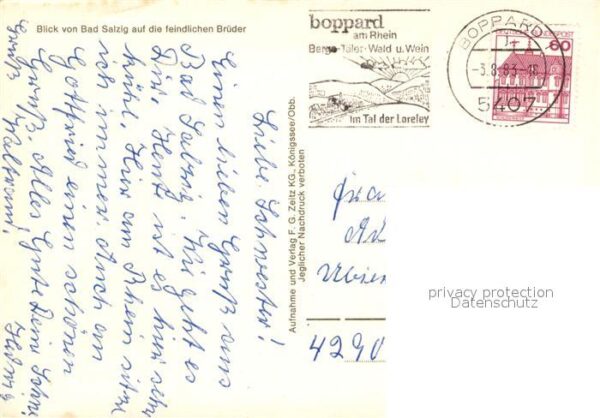 Blick von Bad Salzig auf die feindlichen Brüder
Liebe Schwester!
Einen lieben Gruß aus
Bad Salzig. Wie geht es
Dir? Heute ist es hier sehr
kühl. Hier am Rhein sitze
ich immer. Auch an
Gottfried einen schönen
Gruß. Alles Gute Dein
Gruß Waltraud!
Aufnahme und Verlag F. G. Zeitz KG., Königssee/Obb.
Jeglicher Nachdruck verboten
boppard
am Rhein
Berge·Täler·Wald u. Wein
Im Tal der Loreley
BOPPARD
1
-3.8.83-18
5407
60
Frau
4290
privacy protection
Datenschutz